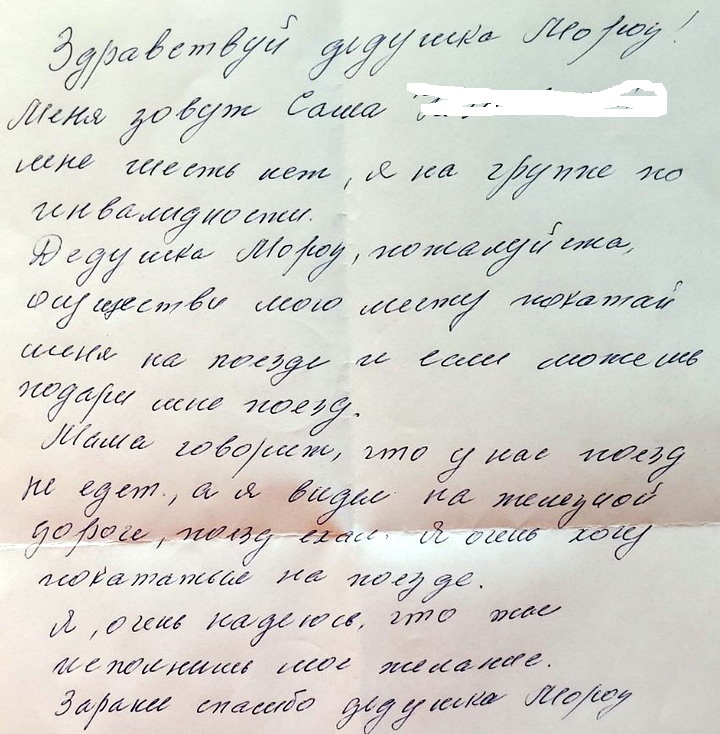 Здравствуй дедушка Мороз!
Меня зовут Саша
мне шесть лет, я на группе по
инвалидности.
Дедушка Мороз, пожалуйста,
осуществи мою мечту покатай
меня на поезде и если можешь
подари мне поезд.
Мама говорит, что у нас поезд
не едет, а я видел на железной
дороге, поезд ехал. Я очень хочу
покататься на поезде.
Я, очень надеюсь, что ты
исполнишь мое желание.
Заранее спасибо дедушка Мороз